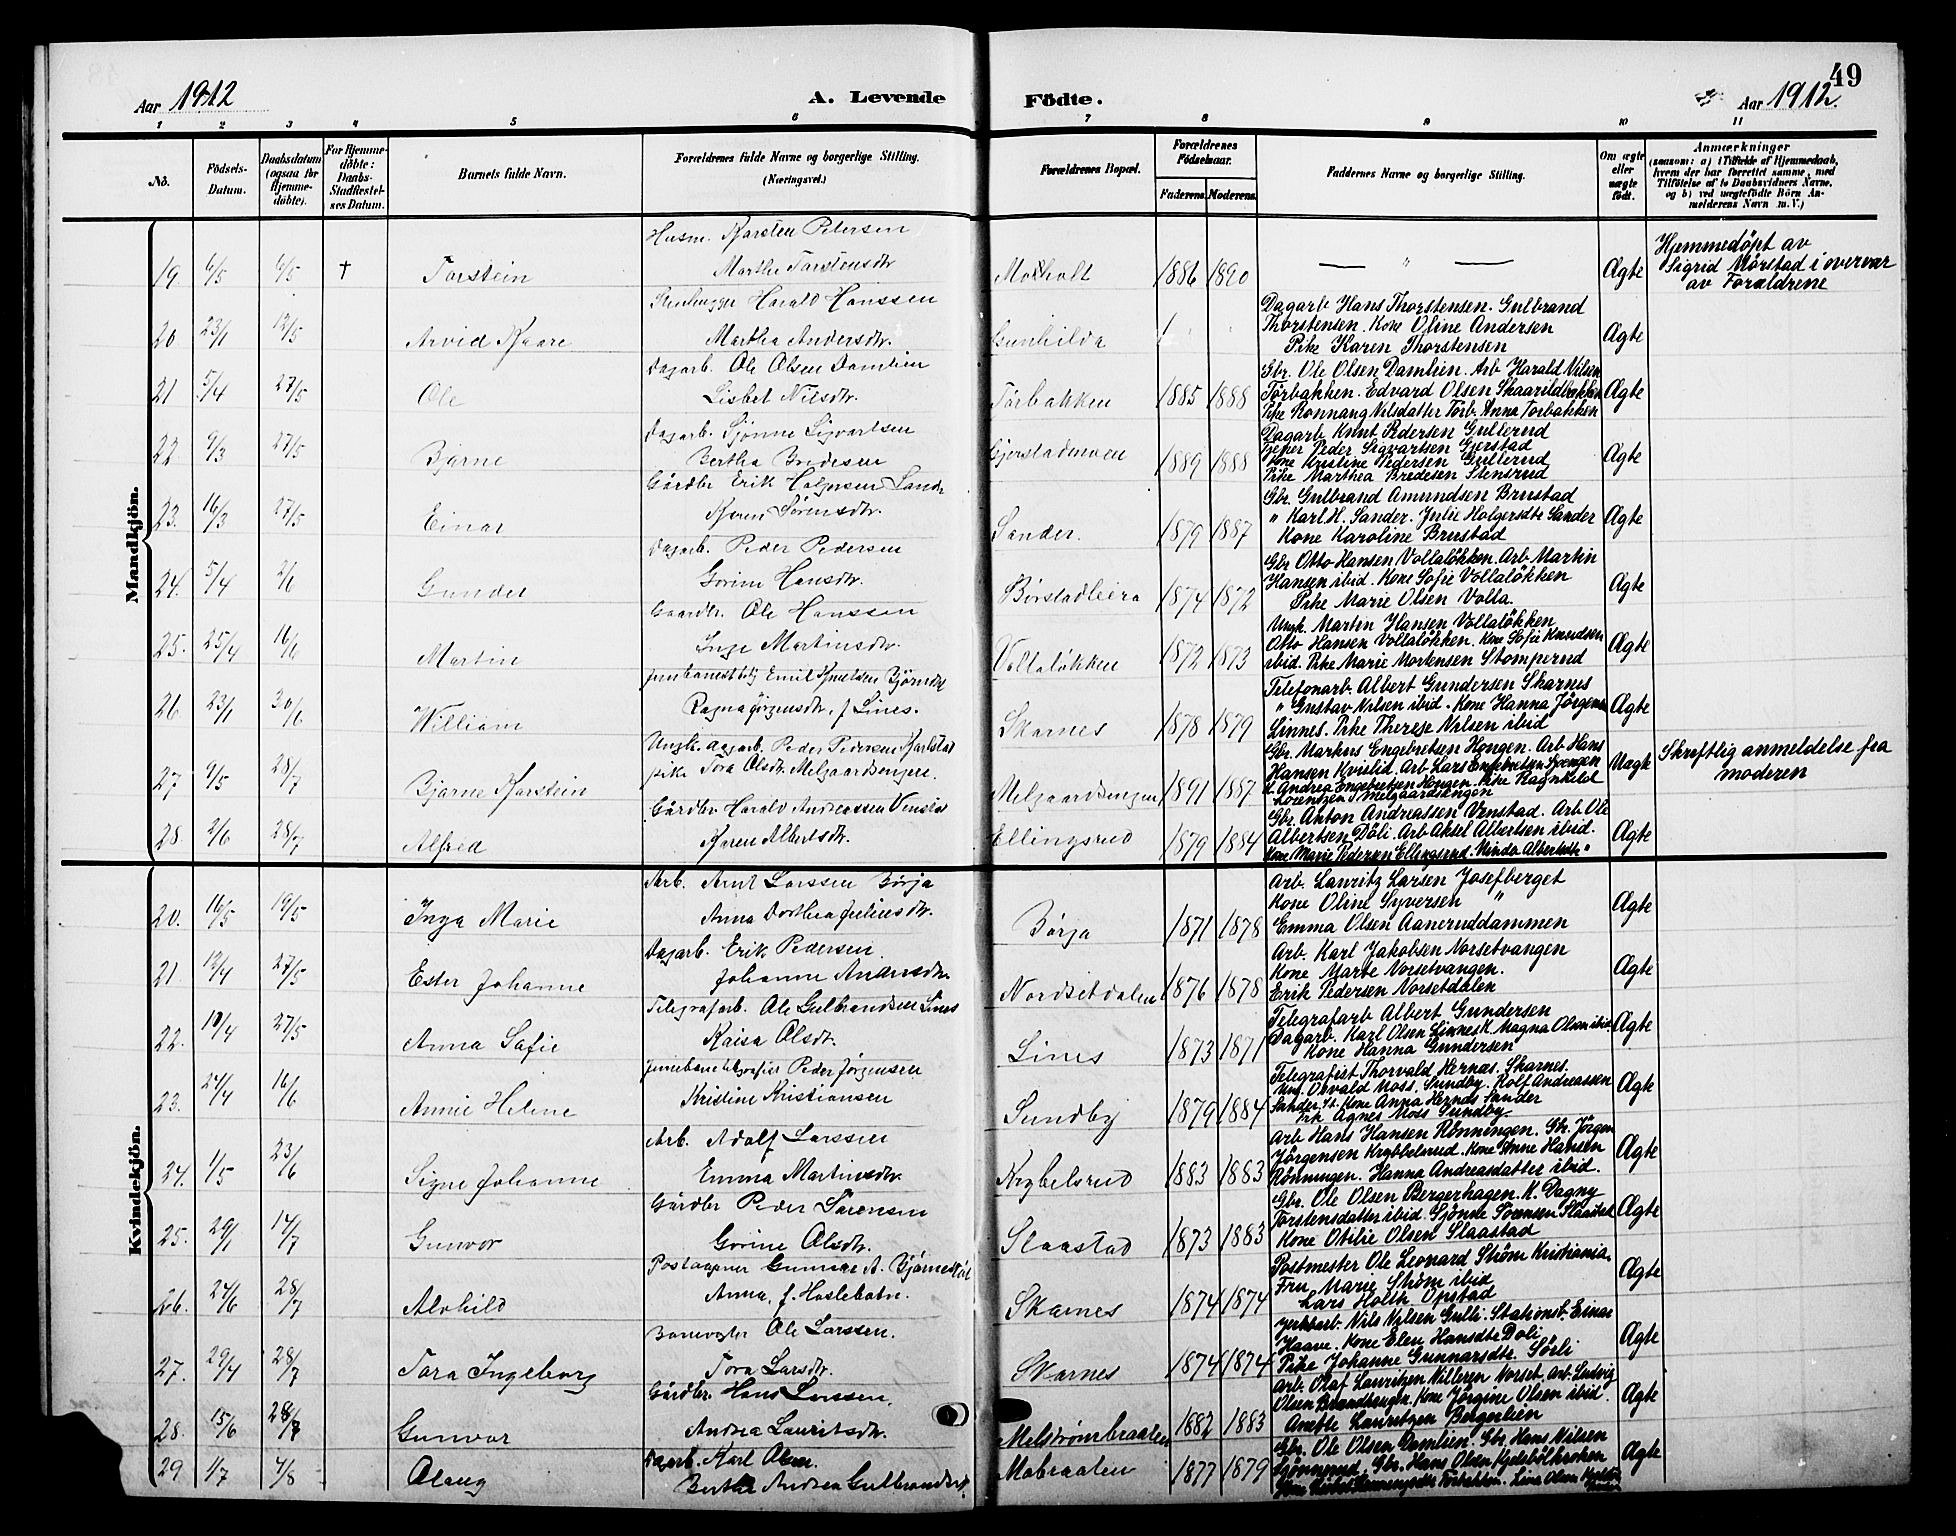 Aar 1912
A. Levende
Födte.
49
Aar 1912.
1 2 3 4 5 6 7 8 9 10 11
No.
Födsels-Datum.
Daabsdatum (ogsaa for Hjemme-döbte).
For Hjemme-döbte: Daabs-Stadfæstel-ses Datum.
Barnets fulde Navn.
Forældrenes fulde Navne og borgerlige Stilling. (Næringsvei.)
Forældrenes Bopæl.
Forældrenes Födselsaar.
Faderens. Moderens.
Faddernes Navne og borgerlige Stilling.
Om ægte eller uægte födt.
Anmærkninger
(saasom: a) i Tilfælde af Hjemmedaab, hvem der har forrettet samme, med Tilföielse af to Daabsvidners Navne, og b) ved uægtefödte Börn An-melderens Navn m. V.)
Mandkjön.
19. 6/5 6/5 † Torstein
Husm. Karsten Petersen
Marthe Torstensdtr
Moholt 1886 1890 — " — Ægte
Hjemmedöpt av
Sigrid Mörstad i overvær
av Forældrene
20 23/1 12/5 Arvid Kaare
Stenhugger Harald Hanssen
Martha Andersdtr.
Gunhilda
Dagarb Hans Thorstensen. Gulbrand
Thorstensen. Kone Oline Andersen
Pike Karen Thorstensen
Ægte
21 5/4 27/5 Ole
Dagarb. Ole Olsen Damlien
Lisbet Nilsdtr.
Torbakken 1885 1888
Gbr. Ole Olsen Damlien. Arb Harald Nilsen
Torbakken. Edvard Olsen Skaarildbakken
Pike Ronnaug Nilsdatter Torb. Anna Torbakken
Ægte
22 9/3 27/5 Bjarne
Dagarb. Sjönne Sigvartsen
Bertha Bredesen
Gjerstadmoen 1889 1888
Dagarb Knut Pedersen Gullerud
Peder Sigvartsen Gjerstad
Kone Kristine Pedersen Gullerud
Pike Marthea Bredesen Stensrud
Ægte
23. 16/3 27/5 Einar
Gårdbr Erik Holgersen Sander
Karen Sörensdtr.
Sander. 1879 1887
Gbr. Gulbrand Amundsen Brustad
" Karl H. Sander. Julie Holgersdtr Sander
Kone Karoline Brustad
Ægte
24. 5/4 2/6 Gunder
Dagarb. Peder Pedersen
Gorine Hansdtr.
Börstadleira 1874 1872
Gbr Otto Hansen Vollalökken. Arb Martin
Hansen ibid. Kone Sofie Vollalökken
Pike Marie Olsen Volla.
Ægte
25. 25/4 16/6 Martin
Gaardbr. Ole Hanssen
Inge Martinsdtr.
Vollalökken 1872 1873
Ungk. Martin Hansen Vollalökken
Otto Hansen Vollalökken. Kone Sofie Knudsen
ibid. Pike Marie Mortensen Stomperud
Ægte
26. 23/1 30/6 William
Emil Knudsen
Ragna Jörgensdtr. f. Lines.
Skarnes 1878 1879
Telefonarb. Albert Gundersen Skarnes
" Gustav Nilsen ibid. Kone Hanna Jörgensen
Linnes. Pike Therese Nilsen ibid
Ægte
27 9/5 28/7 Bjarne Karstein
Ungk. dagarb. Peder Pedersen Karlstad
pike Tora Olsdtr. Melgaardsengen.
Melgaardsengen 1891 1887
Gbr. Markus Engebretsen Hongen. Arb Hans
Hansen Kvislid. Arb Lars Engebretsen
Andrea Engebretsen Hongen. Pike Ragnhild
Lorentzen Melgaardsengen
Uægte
Skriftlig anmeldelse fra
moderen
28. 2/6 28/7 Alfred
Gårdbr. Harald Andreassen Venstad
Karen Albertsdtr.
Ellingsrud 1879 1884
Gbr. Anton Andreassen Venstad. Arb. Ole
Albertsen Döli. Arb Aksel Albertsen ibid.
Kone Marie Pedersen Ellingsrud. Minda Albertsdtr "
Ægte
Kvindekjön.
20. 16/5 19/5 Inga Marie
Arb. Arnt Larssen Börja
Anna Dorthea Juliusdtr.
Börja 1871 1878
Arb. Lauritz Larsen Josefberget
Kone Oline Syversen "
Emma Olsen Aaneruddammen
Ægte
21 12/4 27/5 Ester Johanne
Dagarb. Erik Pedersen.
Johanne Andersdtr.
Nordsetdalen 1876 1878
Arb. Karl Jakobsen Norsetvangen
Kone Marte Norsetvangen.
Erik Pedersen Norsetdalen
Ægte
22. 10/4 27/5 Anna Sofie
Telegrafarb. Ole Gulbrandsen Lines
Kaisa Olsdtr.
Lines 1873 1871
Telegrafarb Albert Gundersen
Dagarb. Karl Olsen Linnes K. Magna Olsen ibid
Kone Hanna Gundersen
Ægte
23. 24/4 16/6 Annie Helene
Jernbanetelegrafist Peder Jörgensen
Kristine Kristiansen
Sundby 1879 1884
Telegrafist Thorvald Hernæs. Skarnes.
Osvald Moss. Sundby. Rolf Andreassen
Sander. Kone Anna Hernes Sander
Agnes Moss Sundby
Ægte
24. 1/5 23/6 Signe Johanne
Arb. Adolf Larssen
Emma Martinsdtr.
Krybelsrud 1883 1883
Arb Hans Hansen Rönningen. Gbr. Jörgen
Jörgensen Krybbelsrud. Kone Anne Hansen
Rönningen. Hanna Andreasdatter ibid.
Ægte
25. 29/1 14/7 Gunvor
Gårdbr Peder Sörensen
Gorine Olsdtr.
Slaastad 1873 1883
Gbr. Ole Olsen Bergerhagen. K. Dagny
Torstensdatter ibid. Sjönne Sörensen Slaastad
Kone Otilie Olsen Slaastad
Ægte
26. 24/6 28/7 Alvhild
Postaapner Gunnar A. Björnestöl
Anna, f. Haslebotn.
Skarnes 1874 1874
Postmester Ole Leonard Ström Kristiania
Fru Marie Ström ibid
Lars Holth Opstad
Ægte
27. 29/4 28/7 Tora Ingeborg
Banevogter Ole Larssen.
Tora Larsdtr.
Skarnes 1874 1874
Nils Nilsen Gulli. Stationsb. Einar
Haave. Kone Elen Hansdtr Döli
Pike Johanne Gunnarsdtr. Sörli
Ægte
28. 15/6 28/7 Gunvor
Gårdbr. Hans Larssen.
Andrea Lauritsdtr.
Melströmbraaten 1882 1883
Arb. Olaf Lauritzen Norset. Arb. Ludvig
Olsen Brandhaugen. Kone Jörgine Olsen ibid.
Anette Lauritzen Bergerlien
Ægte
29 1/7 4/8 Olaug
Dagarb. Karl Olsen.
Berthe Andrea Gulbrandsdtr.
Mobraaten 1877 1879
Gbr. Ole Olsen Damlien. Gbr. Hans Nilsen
Sjönnerud. Gbr. Hans Olsen
Lina Olsen
Ægte